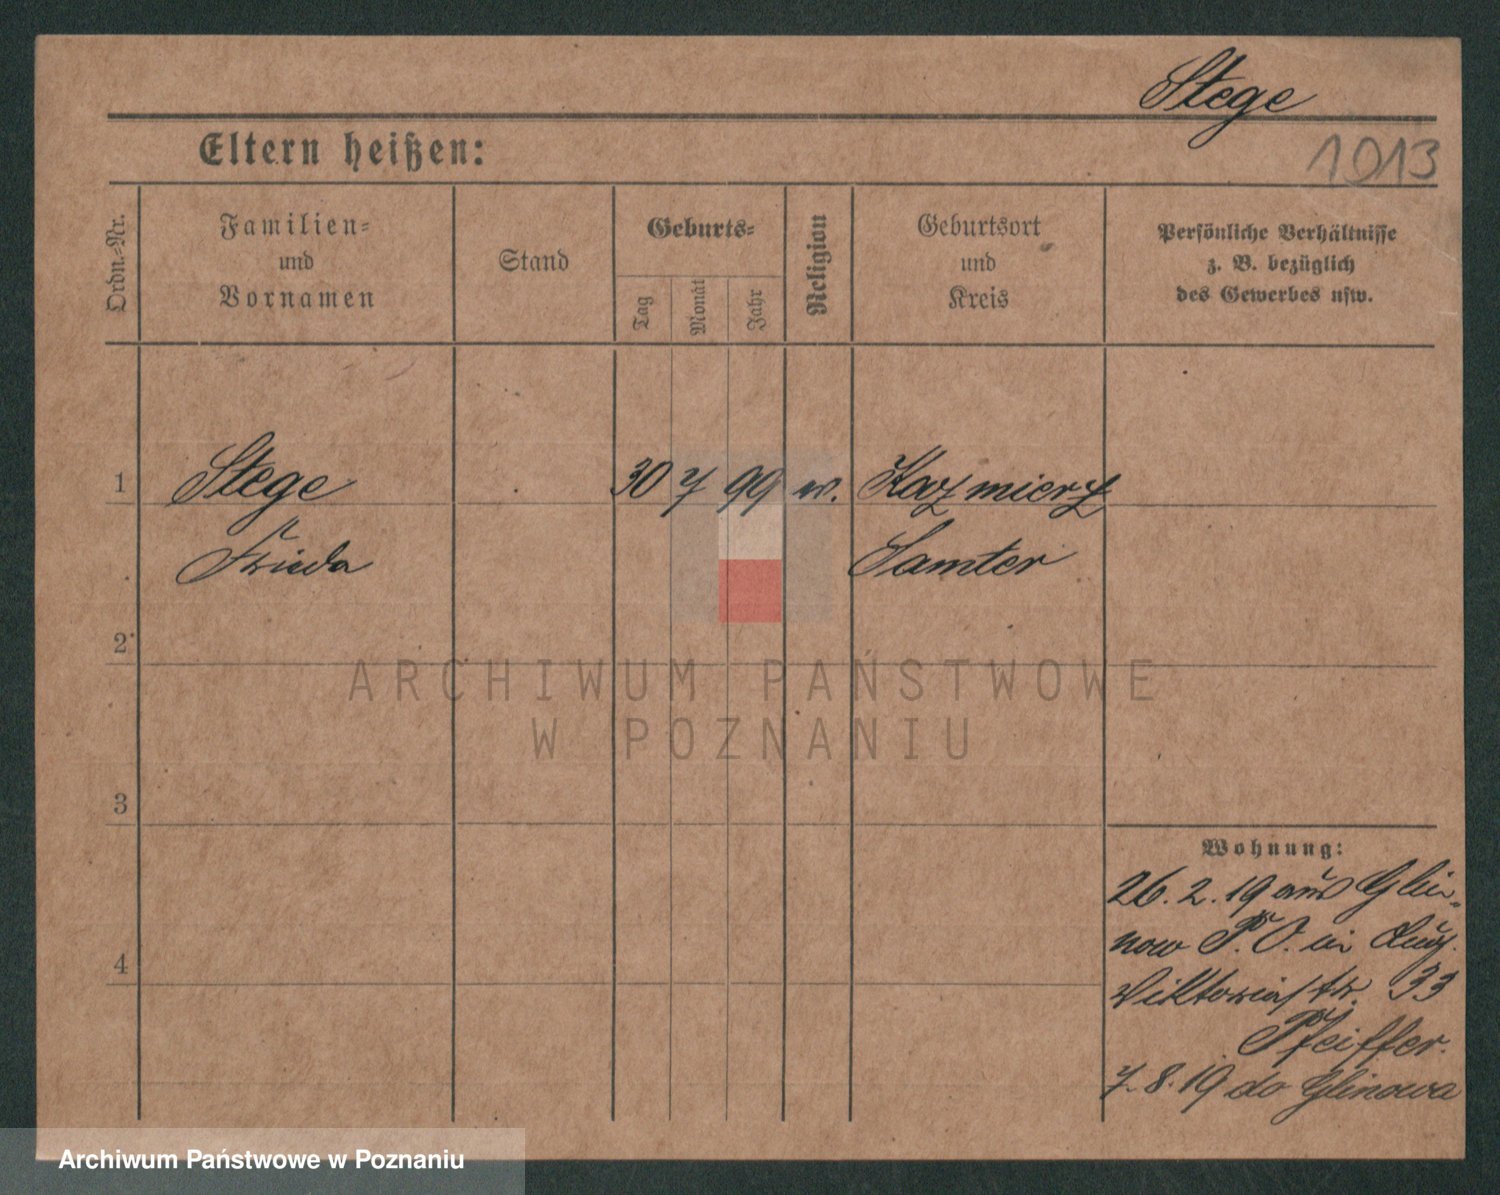 Stege
1013
Eltern heißen:
Ordn.-Nr.
Familien-
und
Vornamen
Stand
Geburts-
Tag
Monat
Jahr
Religion
Geburtsort
und
Kreis
Persönliche Verhältnisse
z. B. bezüglich
des Gewerbes usw.
1 Stege 30 7 99 Kazmierz
Frieda Samter
2
3
4
Wohnung:
26. 2. 19 aus Glin-
now P. O. in Aug.
Viktoriastr. 33
Pfeiffer.
7. 8. 19 do Glinowa
ARCHIWUM PAŃSTWOWE
W POZNANIU
Archiwum Państwowe w Poznaniu